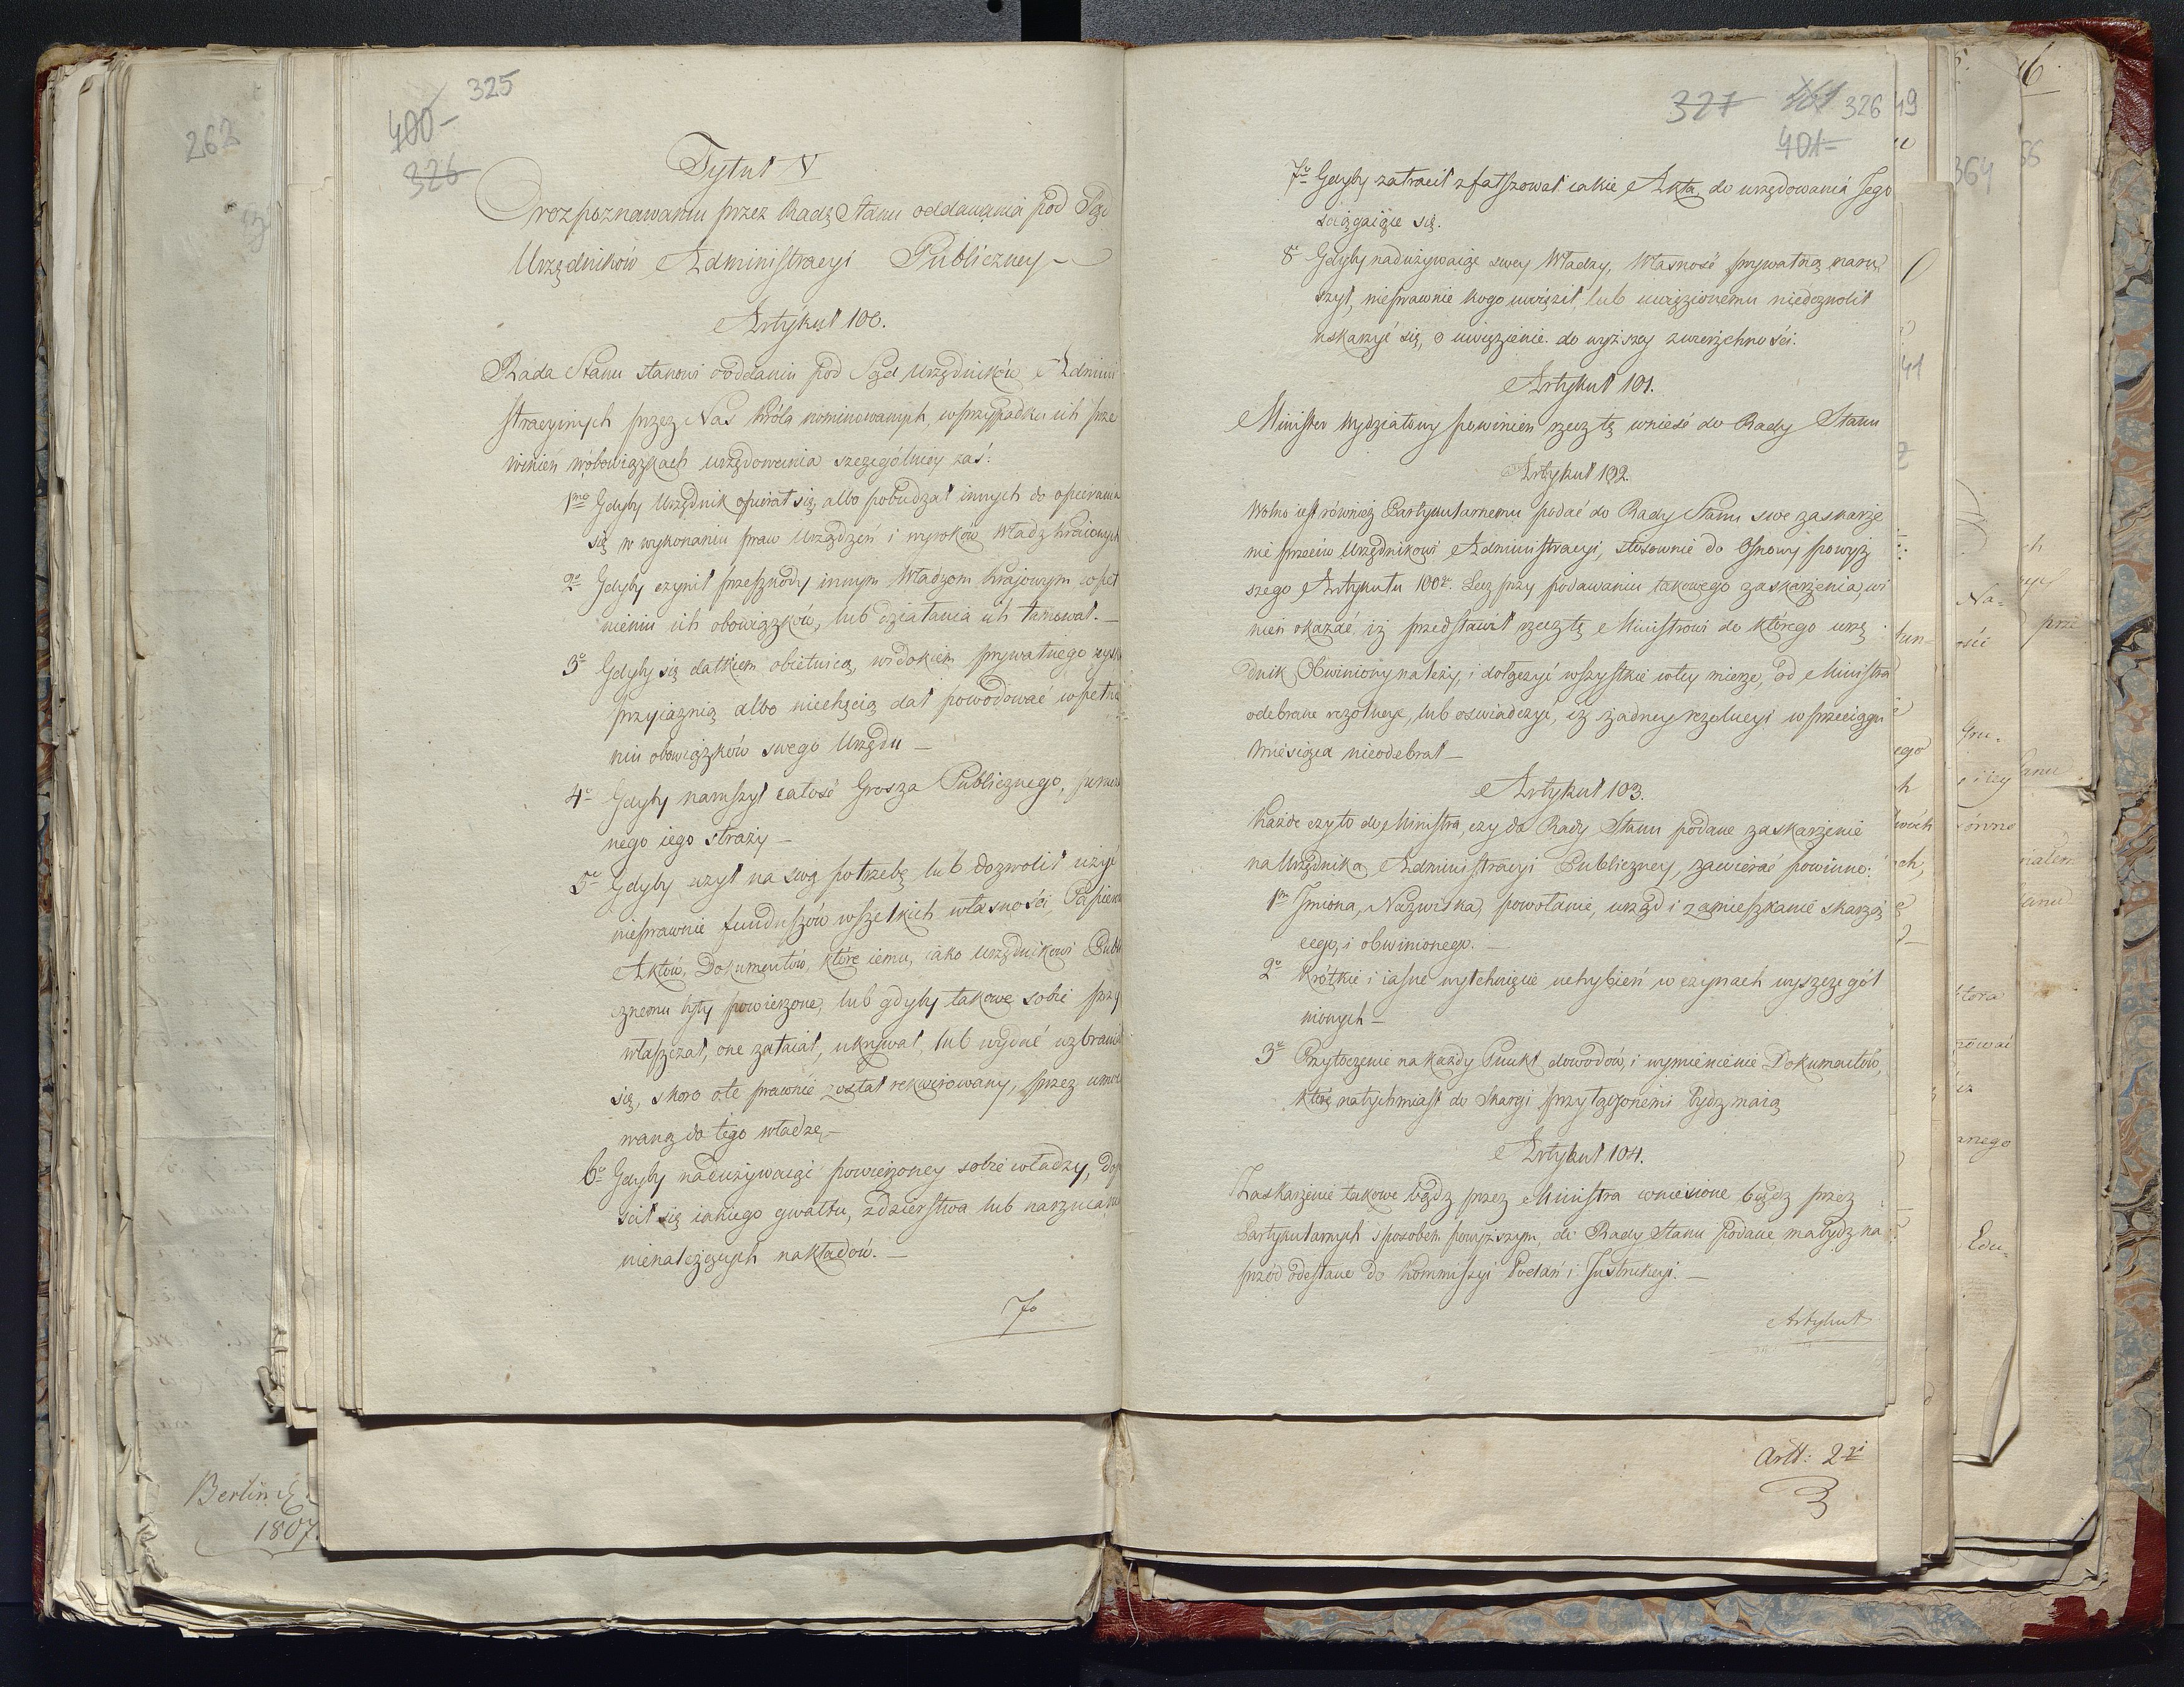 325
400
326
Tytuł V
O rozpoznawaniu przez Radę Stanu oddawania pod Sąd
Urzędników Administracyi Publiczney
Artykuł 100.
Rada Stanu stanowi o oddaniu pod Sąd Urzędników Admini
stracyinych przez Nas Króla nominowanych, w przypadku ich prze
winień w obowiązkach urzędowania szczególniey zaś:
1mo Gdyby Urzędnik opierał się, albo pobudzał innych do opierania
się w wykonaniu praw Urządzeń i wyroków Władz kraiowych
2o Gdyby czynił przeszkody innym Władzom krajowym w peł
nieniu ich obowiązków, lub działania ich tamował. —
3o Gdyby się datkiem obietnicą, widokiem prywatnego zysku
przyiaźnią albo niechęcią dał powodować w pełnie
niu obowiązków swego Urzędu —
4o Gdyby naruszył całość Grosza Publicznego,
nego iego straży —
5o Gdyby użył na swą potrzebę lub dozwolił użyć
nieprawnie funduszów wszelkich własności, Papierów
Aktów, Dokumentów, które iemu, iako Urzędnikowi Publi
cznemu były powierzone, lub gdyby takowe sobie przy
właszczał, one zataiał, ukrywał, lub wydać wzbraniał
się, skoro o te prawnie został rekwirowany, przez umoco
waną do tego władzę. —
6o Gdyby nadużywaiąc powierzoney sobie władzy, dopu
ścił się iakiego gwałtu, zdzierstwa lub narzucania
nienależących nakładów. —
7o
327 401 326
401
7o Gdyby zatracił zfałszował iakie Akta, do urzędowania Jego
ściągaiące się.
8o Gdyby nadużywaiąc swey Władzy, Własność prywatną naru
szył, nieprawnie kogo uwięził lub uwięzionemu niedozwolił
uskarżyć się, o uwięzienie do wyższey zwierzchności.
Artykuł 101.
Minister Wydziałowy powinien rzecz tę wnieść do Rady Stanu
Artykuł 102.
Wolno iest również Partykularnemu podać do Rady Stanu swe zaskarże
nie przeciw Urzędnikowi Administracyi, stosownie do Osnowy powyż
szego Artykułu 100o. Lecz przy podawaniu takowego zaskarżenia, wi
nien okazać iż przedstawił rzecz tę Ministrowi do którego urzę
dnik Obwiniony należy, i dołączyć wszystkie w tey mierze, od Ministra
odebrane rezolucye, lub oswiadczyć, iż żadney rezolucyi w przeciągu
Miesiąca nieodebrał —
Artykuł 103.
Każde czy to do Ministra, czy do Rady Stanu podane zaskarżenie
na Urzędnika Administracyi Publiczney, zawierać powinno:
1mo Jmiona, Nazwiska, powołanie, urząd i zamieszkanie skarżą
cego, i obwinionego. —
2o Krótkie i iasne wytchnięcie uchybień w czynach wyszczegól
nionych —
3o Przytoczenie na każdy Punkt dowodów, i wymienienie Dokumentów,
które natychmiast do Skargi przyłączonemi bydź maią
Artykuł 104.
Zaskarżenie takowe bądz przez Ministra wniesione bądz przez
Partykularnych sposobem powyższym do Rady Stanu podane, ma bydz na
przód odesłane do Kommissyi Podań i Jnstrukcyi. —
Artykuł
Artt: 2gi
262
Berlin
1807.
364